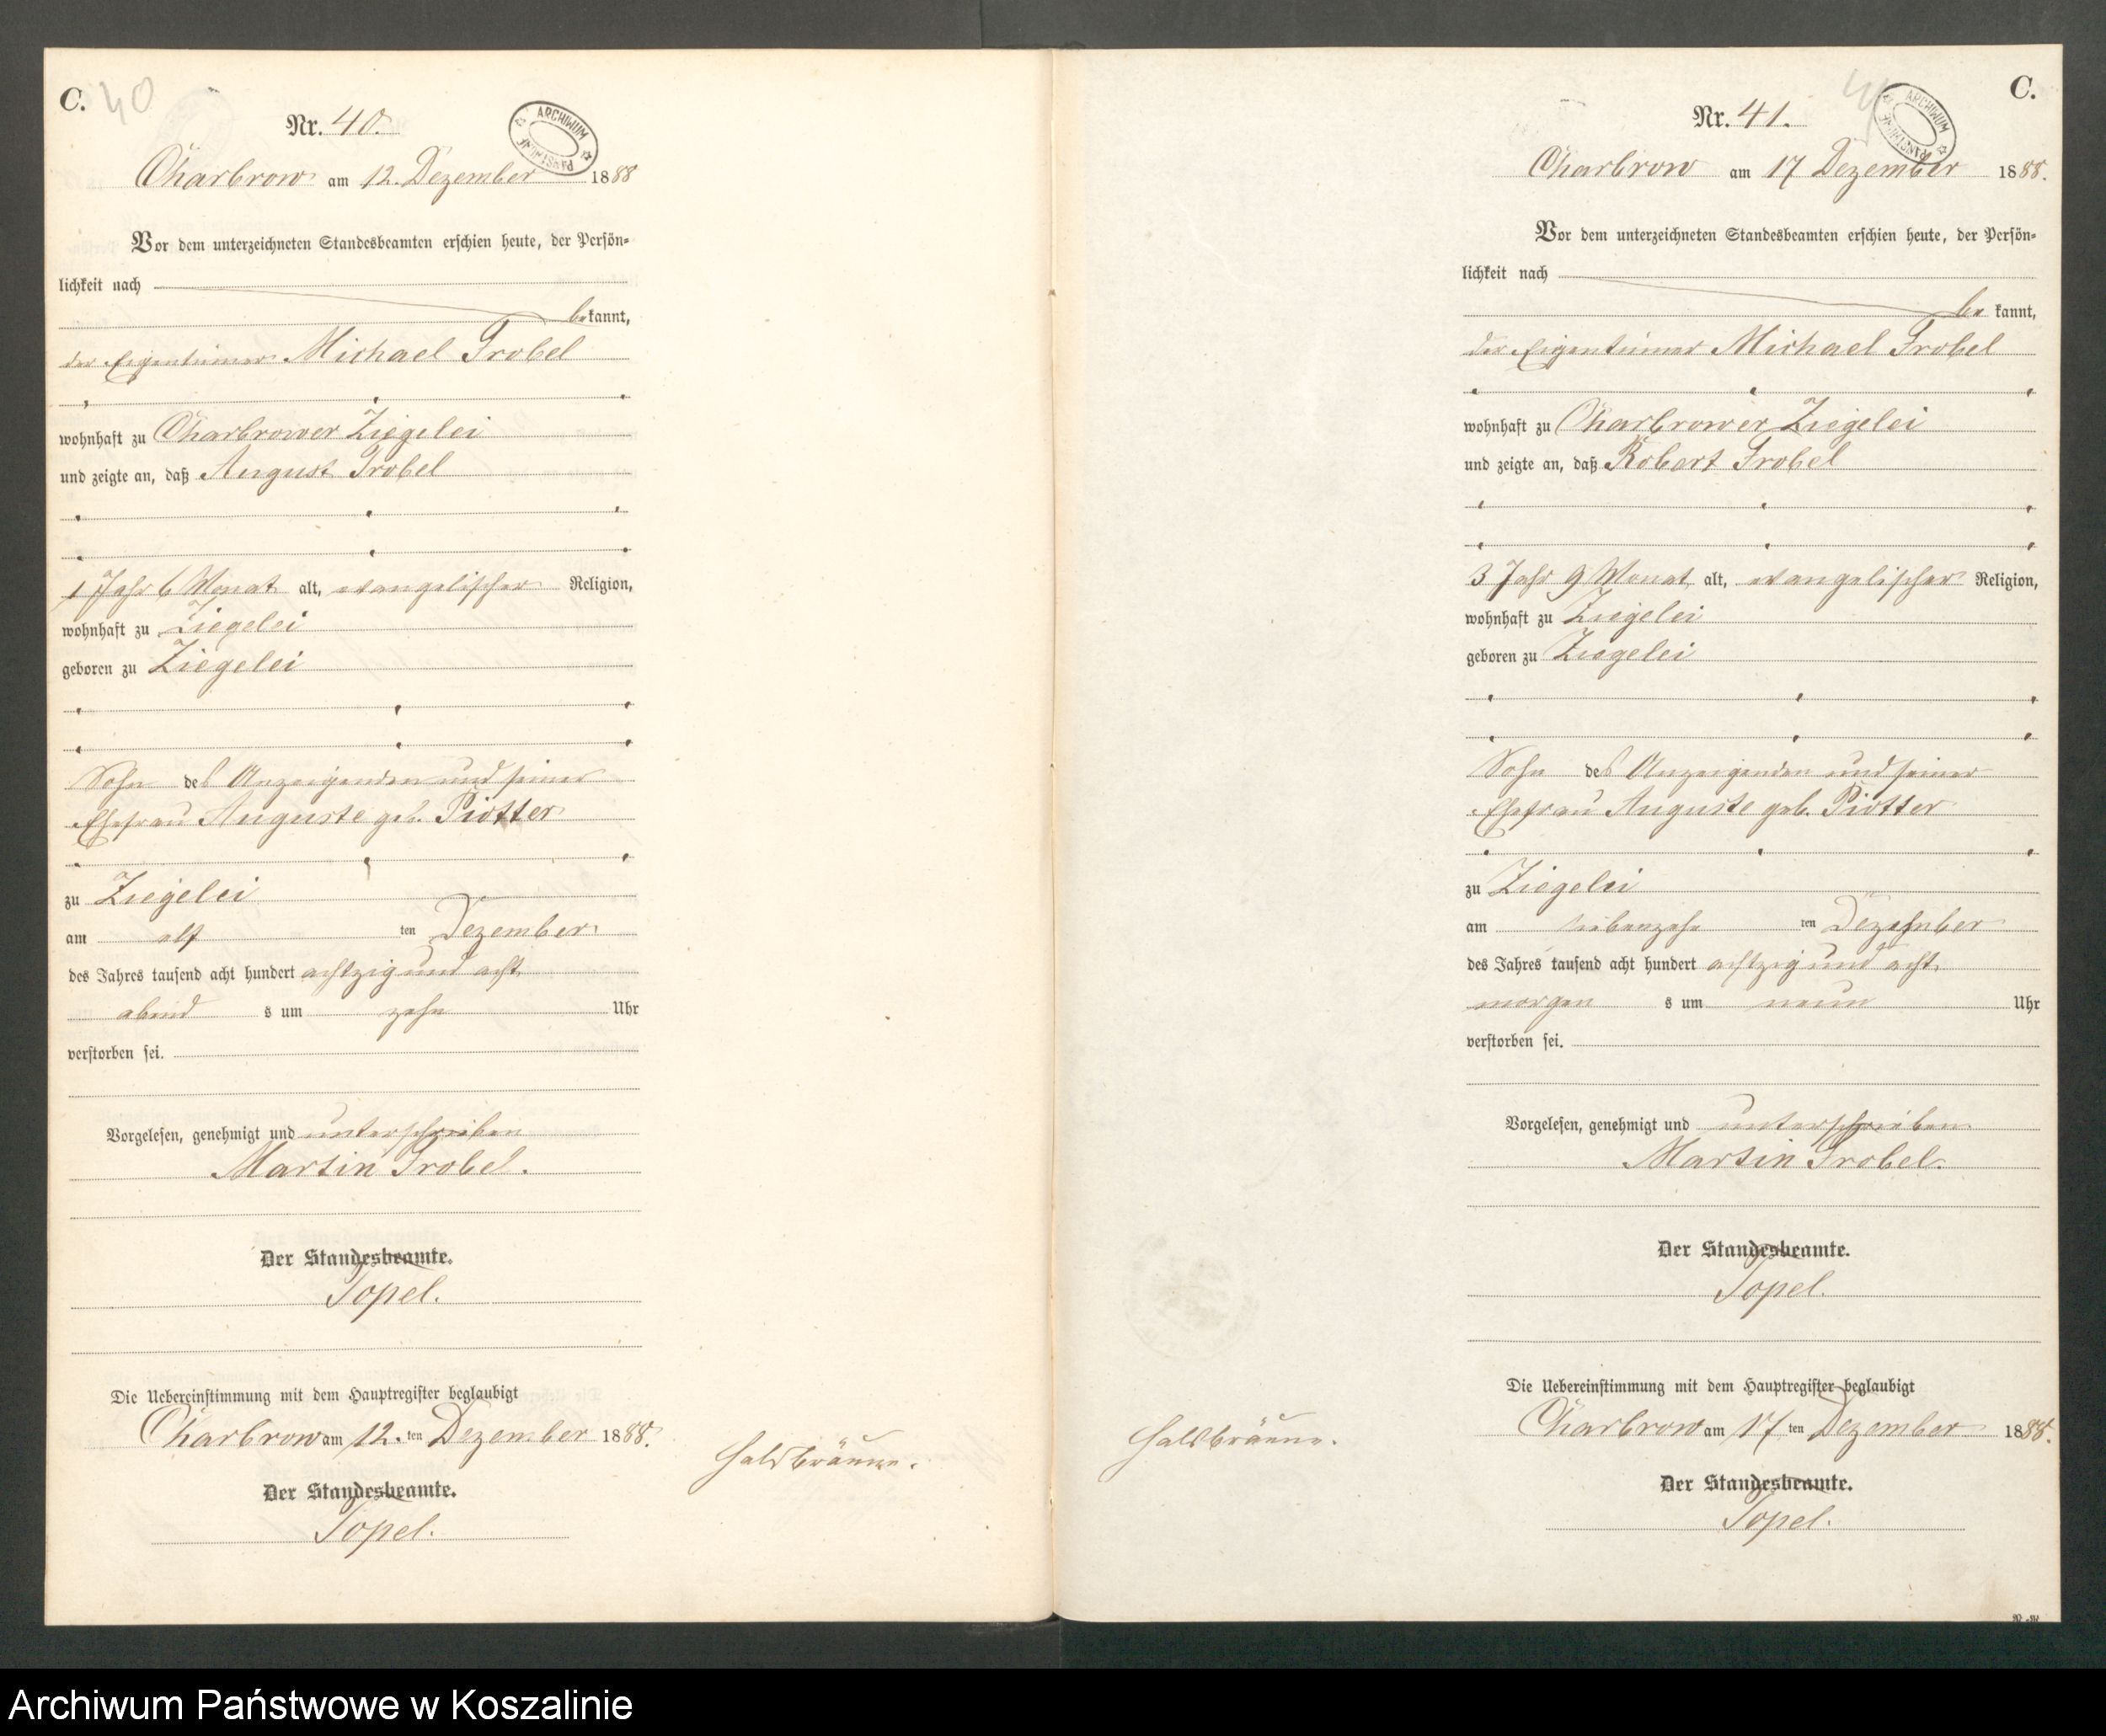 C. 40
Nr. 40.
ARCHIWUM PAŃSTWOWE
Charbrow am 12. Dezember 1888
Vor dem unterzeichneten Standesbeamten erschien heute, der Persön-
lichkeit nach
bekannt,
der Eigentümer Michael Trobel
wohnhaft zu Charbrower Ziegelei
und zeigte an, daß August Trobel
1 Jahr 6 Monat alt, evangelischer Religion,
wohnhaft zu Ziegelei
geboren zu Ziegelei
Sohn des Anzeigenden und seiner
Ehefrau Auguste geb. Piotter
zu Ziegelei
am elf ten Dezember
des Jahres tausend acht hundert achtzig und acht
abend s um zehn Uhr
verstorben sei.
Vorgelesen, genehmigt und unterschrieben
Martin Trobel.
Der Standesbeamte.
Topel.
Die Uebereinstimmung mit dem Hauptregister beglaubigt
Charbrow am 12. ten Dezember 1888.
Der Standesbeamte.
Topel.
Halsbräune.
C.
41
Nr. 41.
ARCHIWUM PAŃSTWOWE
Charbrow am 17 Dezember 1888.
Vor dem unterzeichneten Standesbeamten erschien heute, der Persön-
lichkeit nach
be kannt,
der Eigentümer Michael Trobel
wohnhaft zu Charbrower Ziegelei
und zeigte an, daß Robert Trobel
3 Jahr 9 Monat alt, evangelischer Religion,
wohnhaft zu Ziegelei
geboren zu Ziegelei
Sohn des Anzeigenden und seiner
Ehefrau Auguste geb. Piotter
zu Ziegelei
am siebenzehn ten Dezember
des Jahres tausend acht hundert achtzig und acht
morgen s um neun Uhr
verstorben sei.
Vorgelesen, genehmigt und unterschrieben
Martin Trobel.
Der Standesbeamte.
Topel.
Die Uebereinstimmung mit dem Hauptregister beglaubigt
Charbrow am 17 ten Dezember 1888.
Der Standesbeamte.
Topel.
Halsbräune.
Archiwum Państwowe w Koszalinie